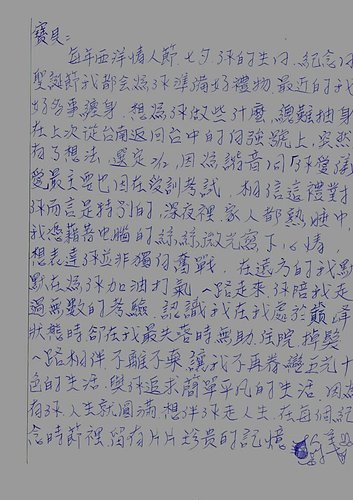 寶貝：
每年西洋情人節、七夕、妳的生日、紀念日
聖誕節我都會為妳準備好禮物，最近的我
好多事纏身，想為妳做些什麼，總難抽身
在上次從台南返回台中的自強號上，突然
有了想法，選定
愛最主要也因在受訓考試，相信這禮對
妳而言是特別的，深夜裡，家人都熟睡中，
我憑藉著電腦的絲絲微光寫下心情，
想表達妳並非獨自奮戰，在遠方的我默
默在為妳加油打氣，一路走來，妳陪我走
過無數的考驗，認識我在我處於巔峰
狀態時，卻在我最失落時無助、住院、掉髮
一路相伴，不離不棄，讓我不再眷戀五光十
色的生活，與妳追求簡單平凡的生活，因為
有妳，人生就圓滿，想伴妳走人生，在每個紀
念時節裡，留有片片珍貴的記憶。